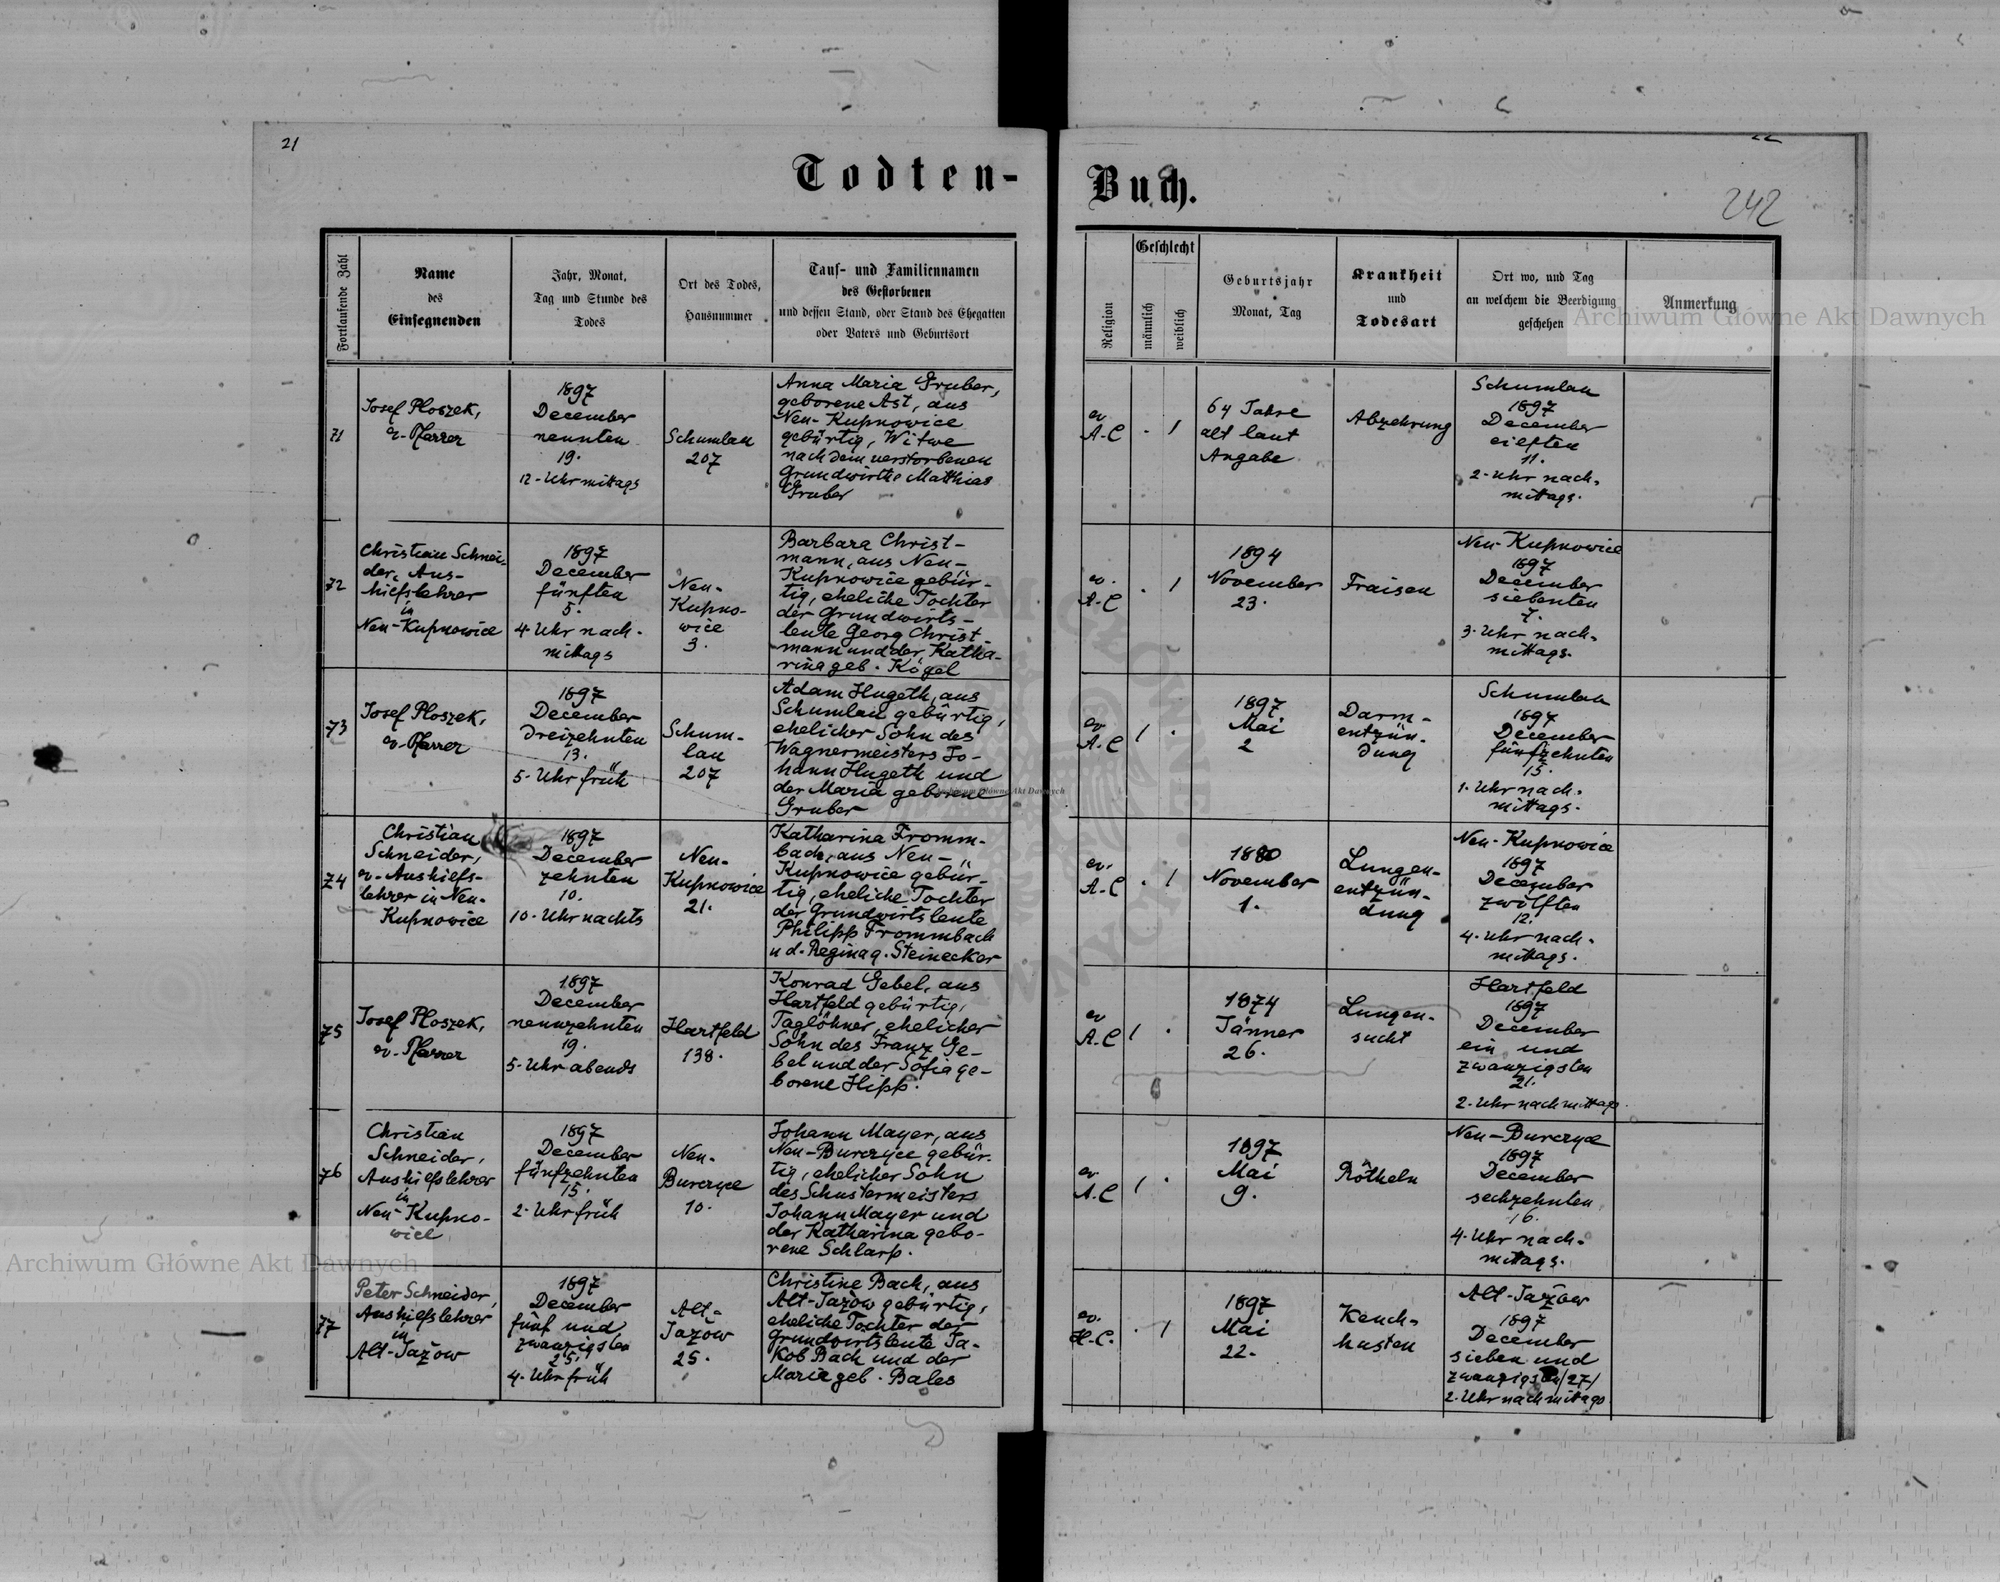 21
22
Todten-
Buch.
242
Fortlaufende Zahl
Name
des
Einsegnenden
Jahr, Monat,
Tag und Stunde des
Todes
Ort des Todes,
Hausnummer
Tauf- und Familiennamen
des Gestorbenen
und dessen Stand, oder Stand des Ehegatten
oder Vaters und Geburtsort
Religion
Geschlecht
männlich
weiblich
Geburtsjahr
Monat, Tag
Krankheit
und
Todesart
Ort wo, und Tag
an welchem die Beerdigung
geschehen
Anmerkung
Archiwum Główne Akt Dawnych
71
Josef Ploszek,
ev. Pfarrer
1897
December
neunten
19.
12-Uhr mittags
Schumlau
207
Anna Maria Gruber,
geborene Ast, aus
Neu-Kupnowice
gebürtig, Witwe
nach dem verstorbenen
Grundwirthe Matthias
Gruber
ev
A.C
. 1
64 Jahre
alt laut
Angabe
Abzehrung
Schumlau
1897
December
eilften
11.
2-Uhr nach-
mittags.
72
Christian Schnei-
der, Aus-
hilfslehrer
in
Neu-Kupnowice
1897
December
fünften
5.
4-Uhr nach-
mittags
Neu-
Kupno-
wice
3.
Barbara Christ-
mann, aus Neu-
Kupnowice gebür-
tig, eheliche Tochter
der Grundwirts-
leute Georg Christ-
mann und der Katha-
rina geb. Kögel
ev.
A.C
. 1
1894
November
23.
Fraisen
Neu-Kupnowice
1897
December
siebenten
7.
3-Uhr nach-
mittags.
73
Josef Ploszek,
ev. Pfarrer
1897
December
dreizehnten
13.
5-Uhr früh
Schum-
lau
207
Adam Hugeth, aus
Schumlau gebürtig,
ehelicher Sohn des
Wagnermeisters Jo-
hann Hugeth und
der Maria geborene
Gruber
ev
A.C
1 .
1897
Mai
2
Darm-
entzün-
dung
Schumlau
1897
December
fünfzehnten
15.
1-Uhr nach-
mittags.
74
Christian
Schneider,
ev. Aushilfs-
lehrer in Neu-
Kupnowice
1897
December
zehnten
10.
10-Uhr nachts
Neu-
Kupnowice
21.
Katharina Fromm-
bach, aus Neu-
Kupnowice gebür-
tig, eheliche Tochter
der Grundwirtsleute
Philipp Frommbach
u d. Regina g. Steinecker
ev.
A.C
. 1
1880
November
1.
Lungen-
entzün-
dung
Neu-Kupnowice
1897
December
zwölften
12.
4-Uhr nach-
mittags.
75
Josef Ploszek,
ev. Pfarrer
1897
December
neunzehnten
19.
5-Uhr abends
Hartfeld
138.
Konrad Gebel, aus
Hartfeld gebürtig,
Taglöhner, ehelicher
Sohn des Franz Ge-
bel und der Sofia ge-
borene Hipp.
ev
A.C
1 .
1874
Jänner
26.
Lungen-
sucht
Hartfeld
1897
December
ein und
zwanzigsten
21.
2-Uhr nachmittags.
76
Christian
Schneider,
Aushilfslehrer
in
Neu-Kupno-
wice
1897
December
fünfzehnten
15.
2-Uhr früh
Neu-
Burczyce
10.
Johann Mayer, aus
Neu-Burczyce gebür-
tig, ehelicher Sohn
des Schustermeisters
Johann Mayer und
der Katharina gebo-
rene Schlarp.
ev
A.C
1 .
1897
Mai
9.
Rötheln
Neu-Burczyce
1897
December
sechzehnten
16.
4-Uhr nach-
mittags.
77
Peter Schneider,
Aushilfslehrer
in
Alt-Jazów
1897
December
fünf und
zwanzigsten
25.
4-Uhr früh
Alt-
Jazów
25.
Christine Bach, aus
Alt-Jazów gebürtig,
eheliche Tochter der
Grundwirtsleute Ja-
kob Bach und der
Maria geb. Bales
ev.
H.C.
. 1
1897
Mai
22.
Keuch-
husten
Alt-Jazów
1897
December
sieben und
zwanzigsten/27/
2-Uhr nachmittags
Archiwum Główne Akt Dawnych
Archiwum Główne Akt Dawnych